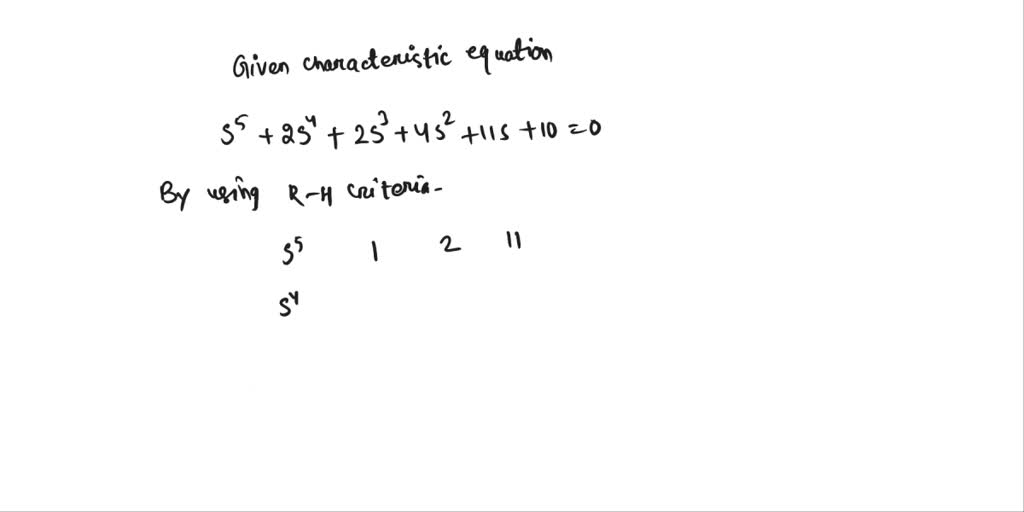 Given characteristic equation
s⁵ + 2s⁴ + 2s³ + 4s² + 11s + 10 = 0
By using R-H criteria-
s⁵ 1 2 11
s⁴